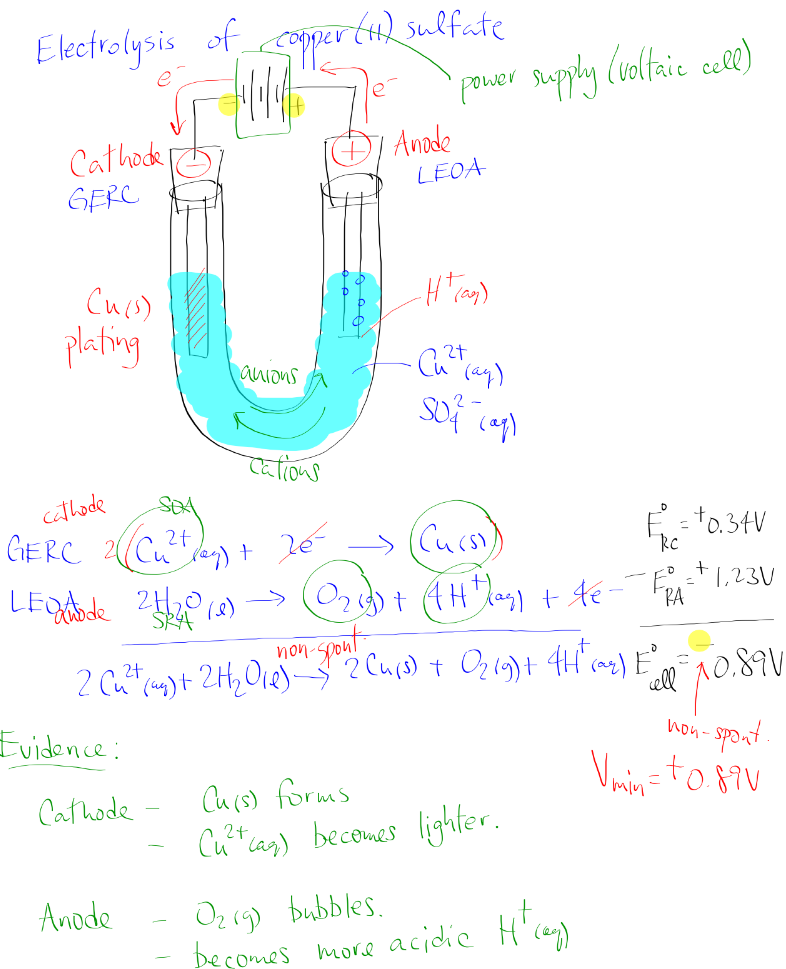 Electrolysis of copper(II) sulfate
power supply (voltaic cell)
e⁻ e⁻
− +
Cathode − + Anode
GERC LEOA
Cu(s)
plating
H⁺(aq)
Cu²⁺(aq)
SO₄²⁻(aq)
anions
cations
cathode SOA
GERC 2(Cu²⁺(aq) + 2e⁻ → Cu(s)) E°RC = +0.34V
LEOA 2H₂O(l) → O₂(g) + 4H⁺(aq) + 4e⁻ − E°RA = +1.23V
anode SRA
non-spont.
2Cu²⁺(aq) + 2H₂O(l) → 2Cu(s) + O₂(g) + 4H⁺(aq) E°cell = −0.89V
non-spont.
Vmin = +0.89V
Evidence:
Cathode – Cu(s) forms
– Cu²⁺(aq) becomes lighter.
Anode – O₂(g) bubbles.
– becomes more acidic H⁺(aq)